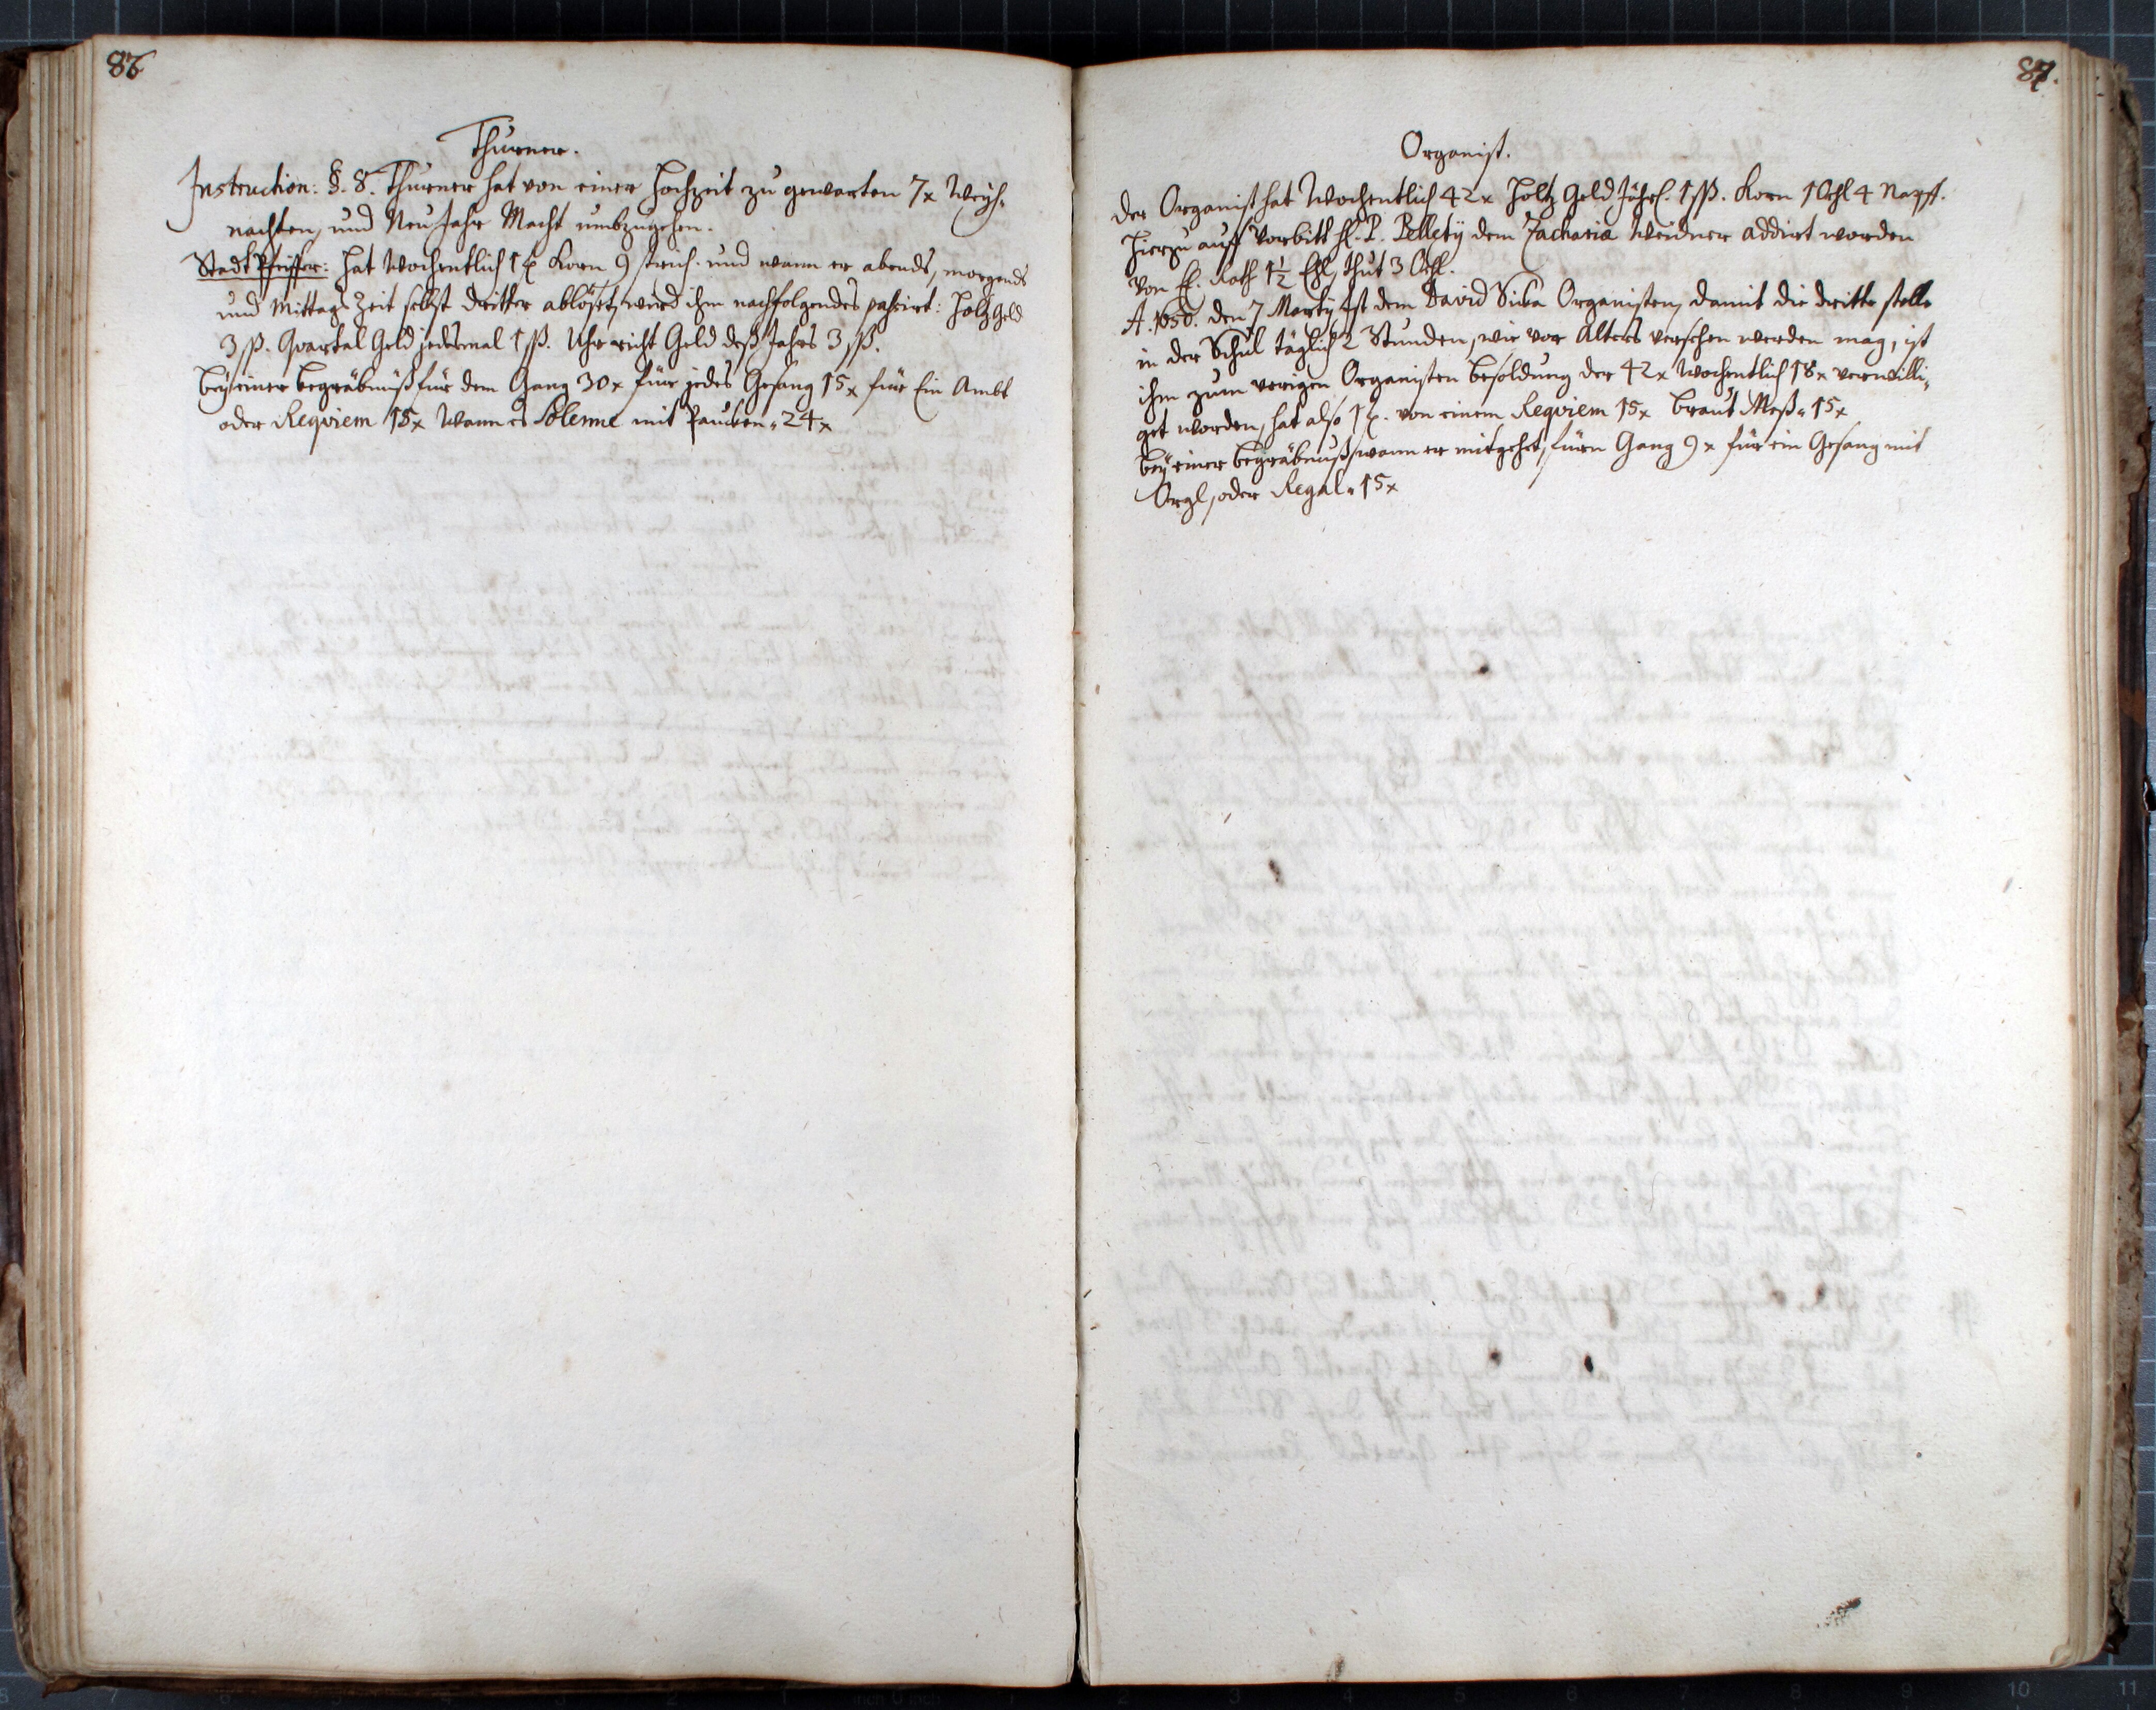 86
Thurner.
Instruction: §. 8. Thurner hat von einer Hochzeit zu gewarten 7x Weyh-
nachten, und Neu Jahr Macht umbzugehen.
Stadt Pfeiffer: Hat Wochentlich 1 Korn 9 strich. und wann er abends, morgends
und Mittags Zeit selbst dritter ablöset, wird ihm nachfolgendes passirt: Holtz Geld
3 ß. Quartal Geld jedesmal 1 ß. Uhr richt Geld deß Jahrs 3 ß.
bey einer begräbnüß für dem Gang 30x für jedes Gesang 15x für Ein Ambt
oder Reqviem 15x Wann es Solenne mit Paucken " 24x
87.
Organist.
Der Organist hat Wochentlich 42x Holtz Geld Jährl. 1 ß. Korn 1 4 Napff.
Hierzu auff Vorbitt H. P. Pelletÿ dem Zacharia Weidner addirt worden
Von E. Rath 1½ thut 3
A. 1656. den 7 Martÿ Ist dem David Organisten, damit die dritte stelle
in der Schul täglich 2 Stunden, wie vor Alters versehen werden mag, ist
ihm zum vorigen Organisten besoldung der 42x Wochentlich 18x verwilli-
get worden, hat also 1 von einem Reqviem 15x braut Meß " 15x
beÿ einer begräbnuß, wann er mitgehet, fürn Gang 9x für ein Gesang mit
Orgl, oder Regal " 15x